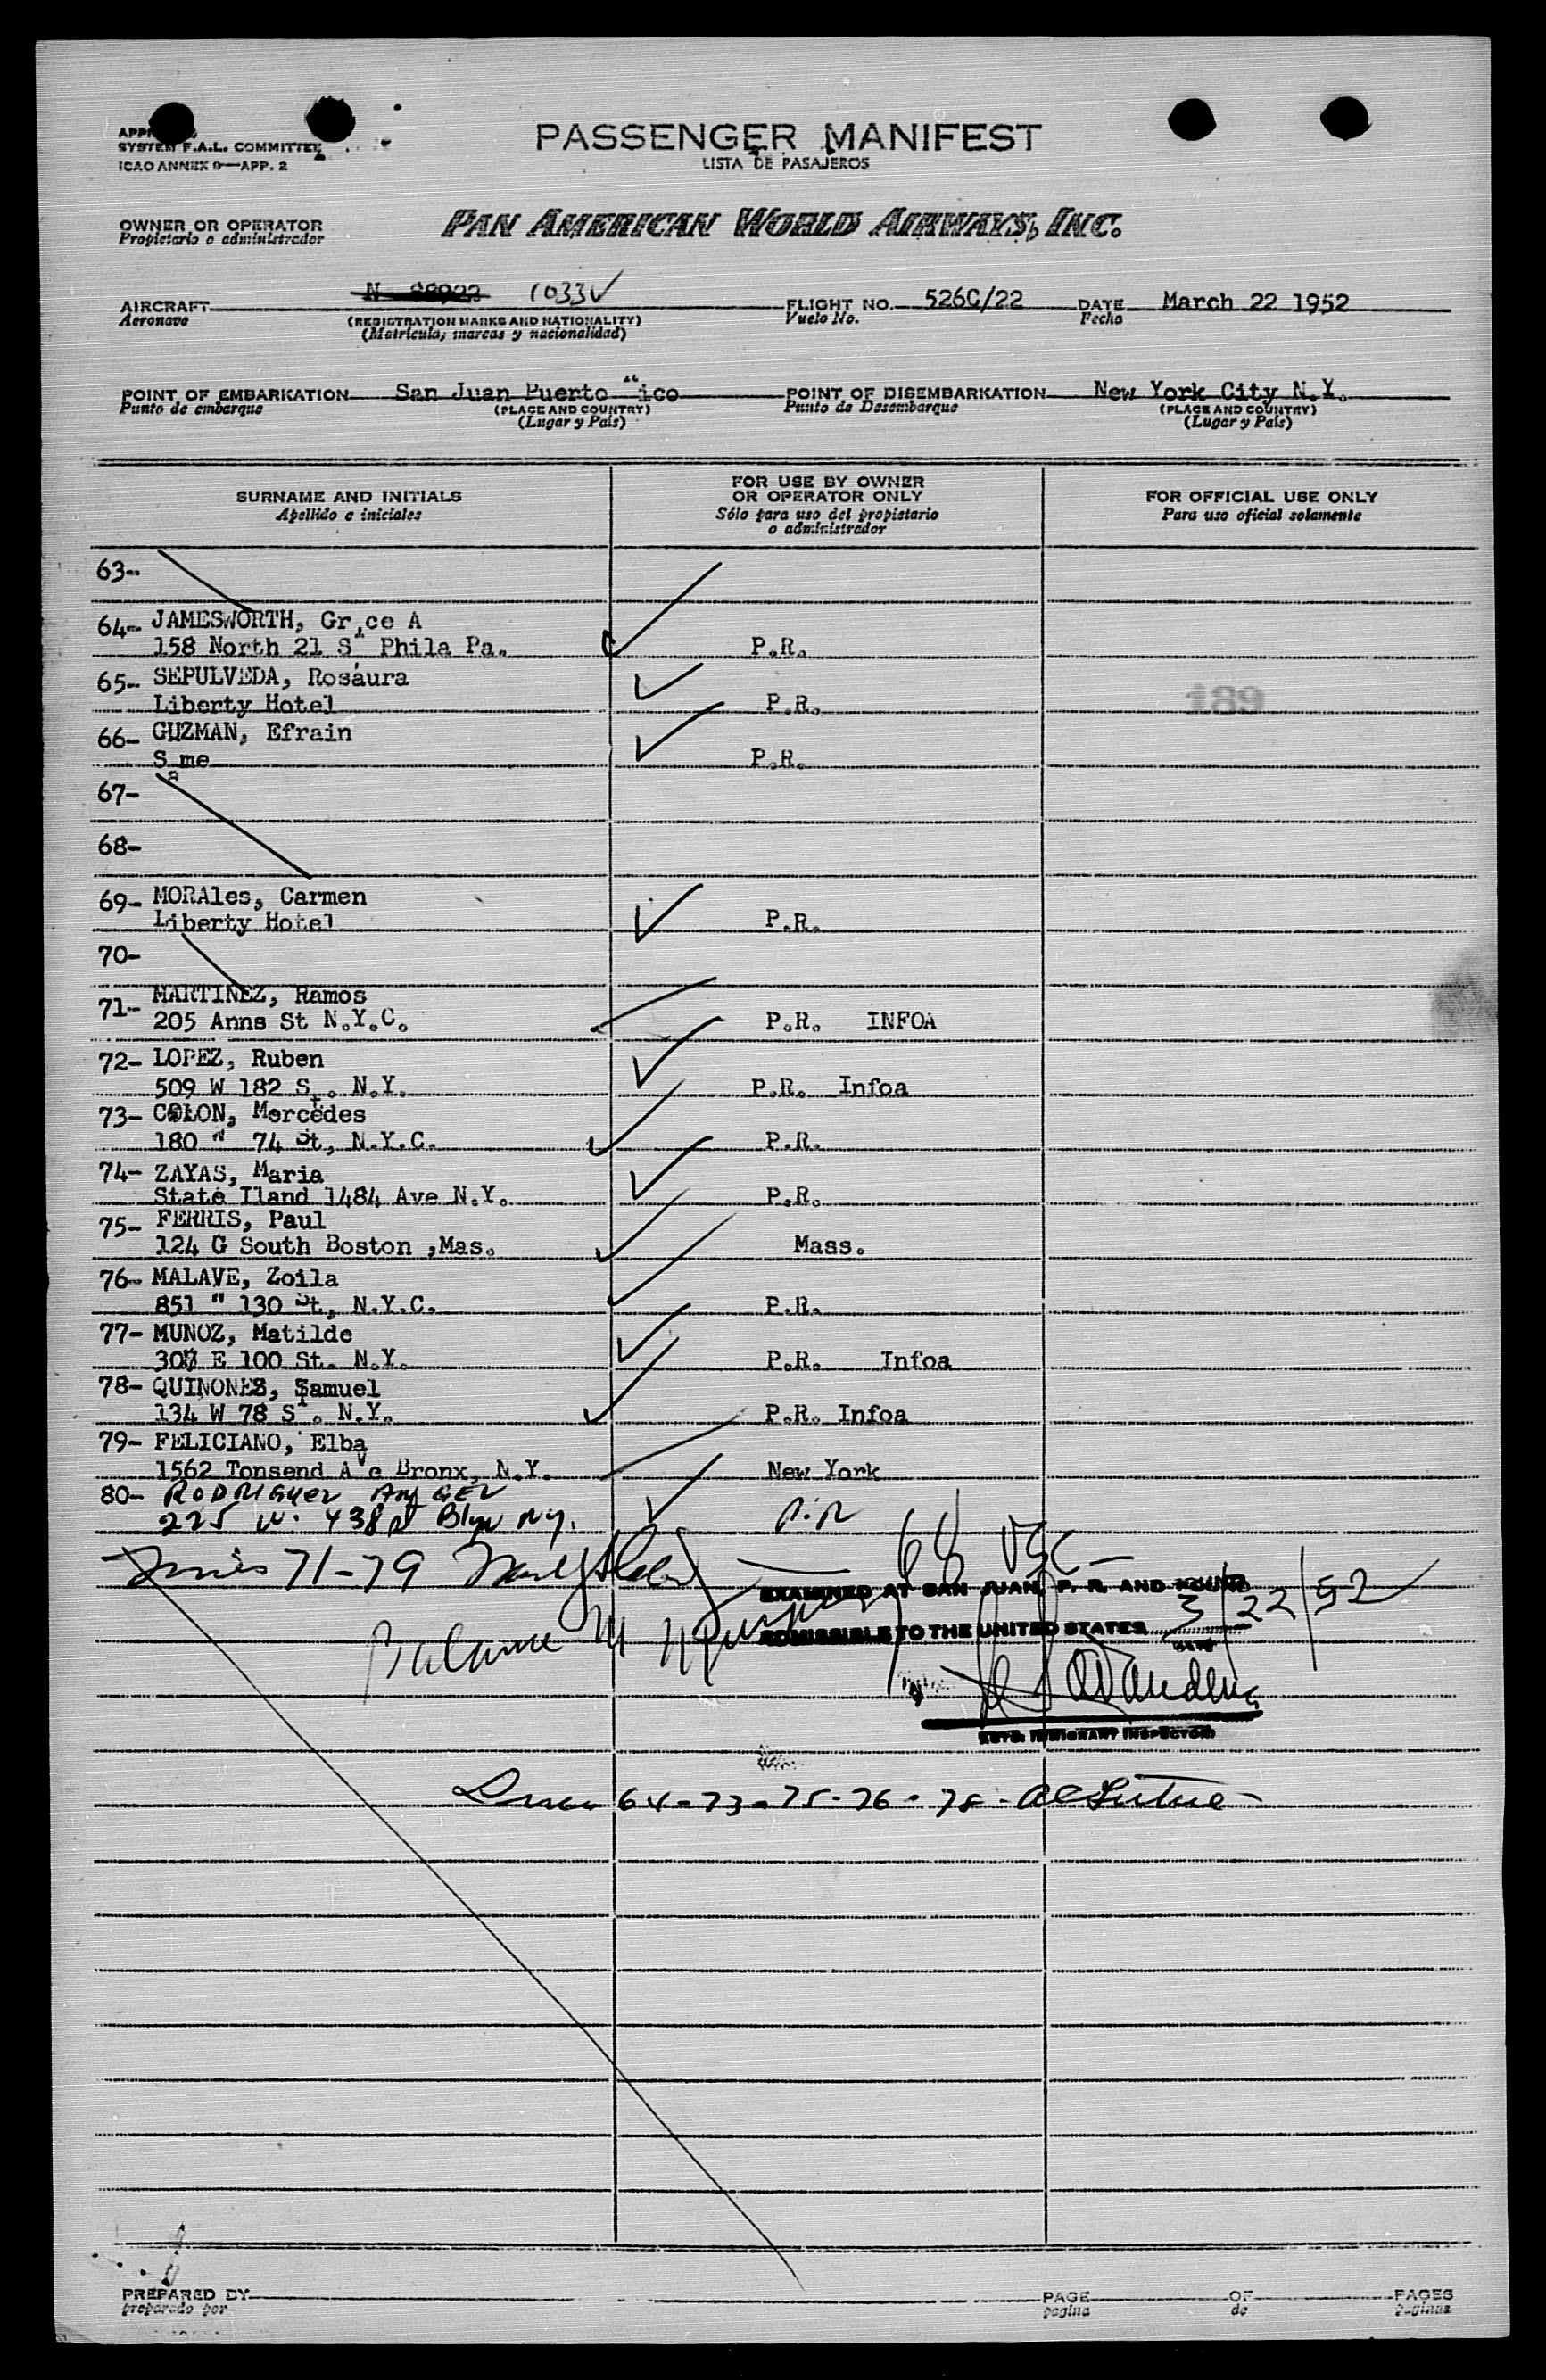 SYSTEM F.A.L. COMMITTEE
ICAO ANNEX 9—APP. 2
PASSENGER MANIFEST
LISTA DE PASAJEROS
OWNER OR OPERATOR
Propietario o administrador
PAN AMERICAN WORLD AIRWAYS, INC.
AIRCRAFT N 88923 1033V
Aeronave
(REGISTRATION MARKS AND NATIONALITY)
(Matricula, marcas y nacionalidad)
FLIGHT NO. 526C/22
Vuelo No.
DATE March 22 1952
Fecha
POINT OF EMBARKATION San Juan Puerto Rico
Punto de embarque
(PLACE AND COUNTRY)
(Lugar y País)
POINT OF DISEMBARKATION New York City N.Y.
Punto de Desembarque
(PLACE AND COUNTRY)
(Lugar y País)
SURNAME AND INITIALS
Apellido e iniciales
FOR USE BY OWNER
OR OPERATOR ONLY
Sólo para uso del propietario
o administrador
FOR OFFICIAL USE ONLY
Para uso oficial solamente
63-
64- JAMESWORTH, Gr,ce A
158 North 21 St Phila Pa. P.R.
65- SEPULVEDA, Rosaura
Liberty Hotel P.R.
189
66- GUZMAN, Efrain
Same P.R.
67-
68-
69- MORAles, Carmen
Liberty Hotel P.R.
70-
71- MARTINEZ, Ramos
205 Anns St N.Y.C. P.R. INFOA
72- LOPEZ, Ruben
509 W 182 St. N.Y. P.R. Infoa
73- COLON, Mercedes
180 W 74 St, N.Y.C. P.R.
74- ZAYAS, Maria
State Iland 1484 Ave N.Y. P.R.
75- FERRIS, Paul
124 G South Boston ,Mas. Mass.
76- MALAVE, Zoila
851 W 130 St, N.Y.C. P.R.
77- MUNOZ, Matilde
307 E 100 St. N.Y. P.R. Infoa
78- QUINONES, Samuel
134 W 78 St. N.Y. P.R. Infoa
79- FELICIANO, Elba
1562 Tonsend Ave Bronx, N.Y. New York
80- RODRIGUEZ ANGEL
225 W. 438 St Blyn NY. P.R
71-79
68 USC
EXAMINED AT SAN JUAN, P. R. AND FOUND
ADMISSIBLE TO THE UNITED STATES 3/22/52
DATE
Balance
IMMIGRANT INSPECTOR
64-73-75-76-78-
PREPARED BY
preparado por
PAGE OF PAGES
pagina de paginas